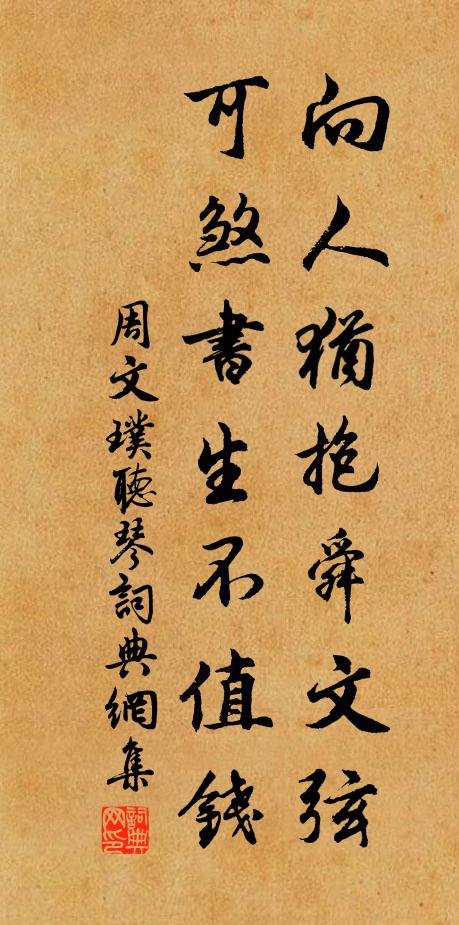 向人猶抱舜文弦
可煞書生不值錢
周文璞聽琴詞典網集
詞典网印